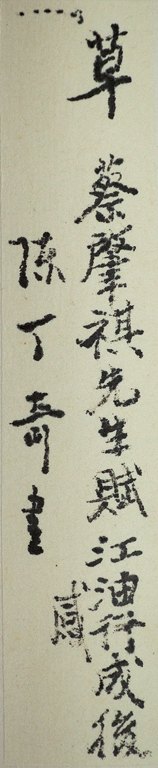 草 蔡肇祺先生賦江油行成後
貳
陳丁奇書